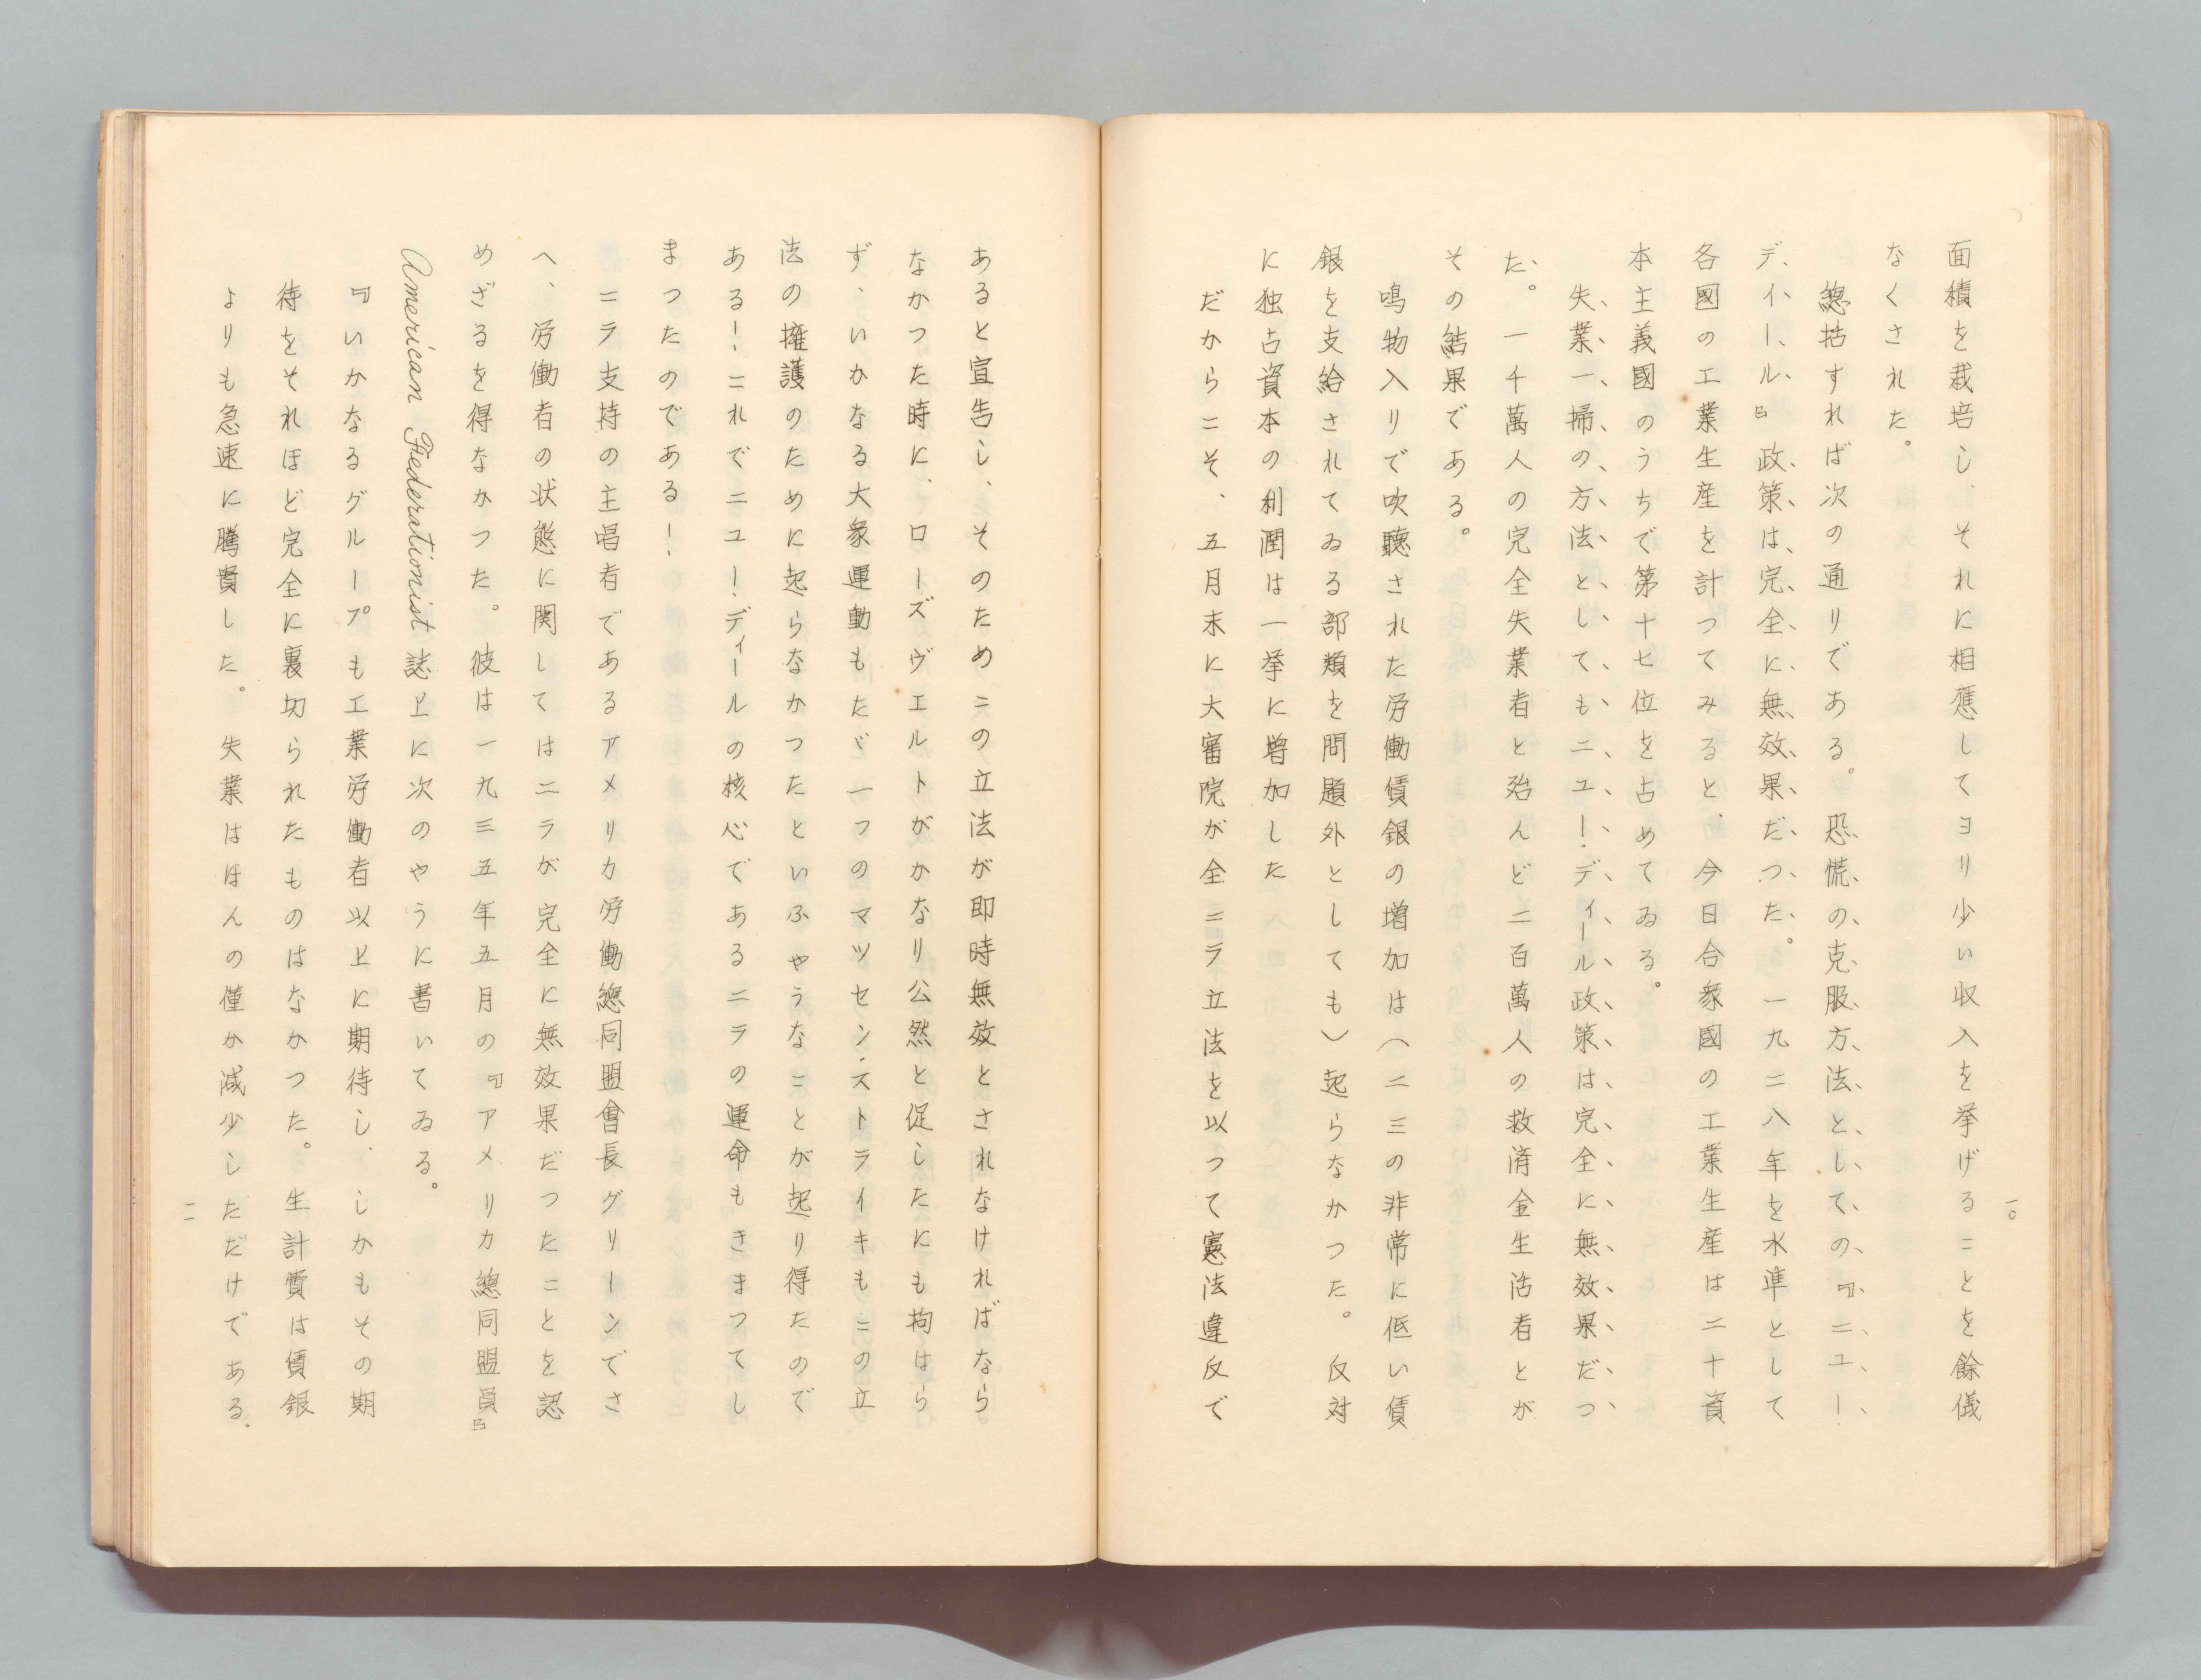 一〇
面積を栽培し、それに相應してヨリ少い収入を挙げることを餘儀
なくされた。
總括すれば次の通りである。恐慌の克服方法としての『ニユー
デイール』政策は完全に無效果だつた。一九二八年を水準として
各國の工業生産を計つてみると、今日合衆國の工業生産は二十資
本主義國のうちで第十七位を占めてゐる。
失業一掃の方法としてもニユー・ディール政策は完全に無效果だつ
た。一千萬人の完全失業者と殆んど二百萬人の救済金生活者とが
その結果である。
鳴物入りで吹聽された労働賃銀の増加は（二三の非常に低い賃
銀を支給されてゐる部類を問題外としても）起らなかつた。反対
に独占資本の利潤は一挙に増加した
だからこそ、五月末に大審院が全ニラ立法を以つて憲法違反で
あると宣告し、そのためこの立法が即時無效とされなければなら
なかつた時に、ローズヴエルトがかなり公然と促したにも拘はら
ず、いかなる大衆運動もたゞ一つのマツセン・ストライキもこの立
法の擁護のために起らなかつたといふやうなことが起り得たので
ある！これでニユー・ディールの核心であるニラの運命もきまつてし
まつたのである！
ニラ支持の主唱者であるアメリカ労働總同盟會長グリーンでさ
へ、労働者の状態に関してはニラが完全に無效果だつたことを認
めざるを得なかつた。彼は一九三五年五月の『アメリカ總同盟員』
American Federationist 誌上に次のやうに書いてゐる。
『いかなるグループも工業労働者以上に期待し、しかもその期
待をそれほど完全に裏切られたものはなかつた。生計費は賃銀
よりも急速に騰貴した。失業はほんの僅か減少しただけである。
一一